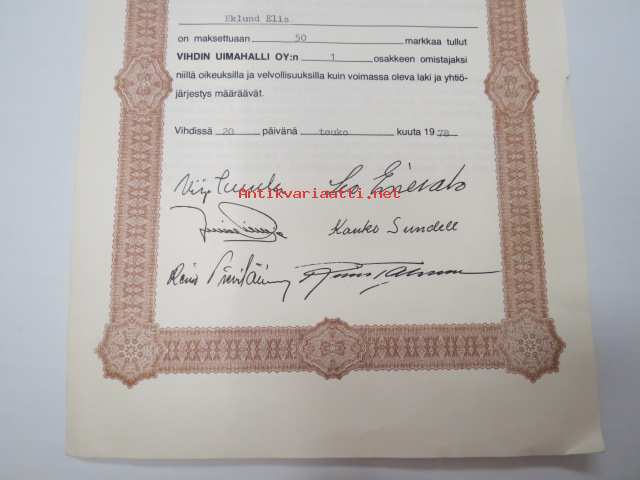 Eklund Elis
on maksettuaan 50 markkaa tullut
VIHDIN UIMAHALLI OY:n 1 osakkeen omistajaksi
niillä oikeuksilla ja velvollisuuksilla kuin voimassa oleva laki ja yhtiö-
järjestys määräävät.
Vihdissä 20 päivänä touko kuuta 1978
Antikvariaatti.net
Kauko Sundell